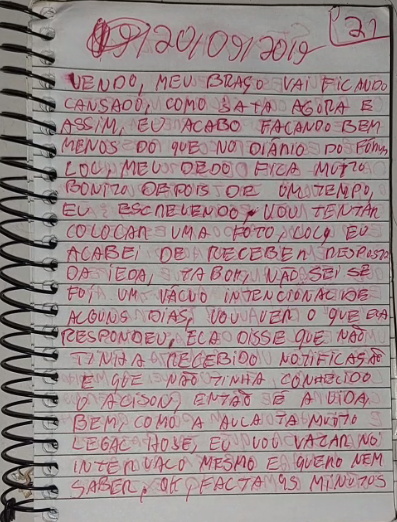 20/09/2019
21
VENDO, MEU BRAÇO VAI FICANDO
CANSADO, COMO JÁ TÁ AGORA E
ASSIM, EU ACABO FALANDO BEM
MENOS DO QUE NO DIÁRIO DO
LOL, MEU DEDO FICA MUITO
BONITO DEPOIS DE UM TEMPO,
EU ESCREVENDO, VOU TENTAR
COLOCAR UMA FOTO, LOL, EU
ACABEI DE RECEBER RESPOSTA
DA IEDA, TABOM, NÃO SEI SE
FOI UM VÁCUO INTENCIONAL DE
ALGUNS DIAS, VOU VER O QUE ELA
RESPONDEU, ELA DISSE QUE NÃO
TINHA RECEBIDO NOTIFICAÇÃO
E QUE NÃO TINHA CONHECIDO
O ALISON, ENTÃO É A VIDA,
BEM, COMO A AULA TÁ MUITO
LEGAL HOJE, EU VOU VAZAR NO
INTERVALO MESMO E QUERO NEM
SABER, OK, FALTAM MINUTOS